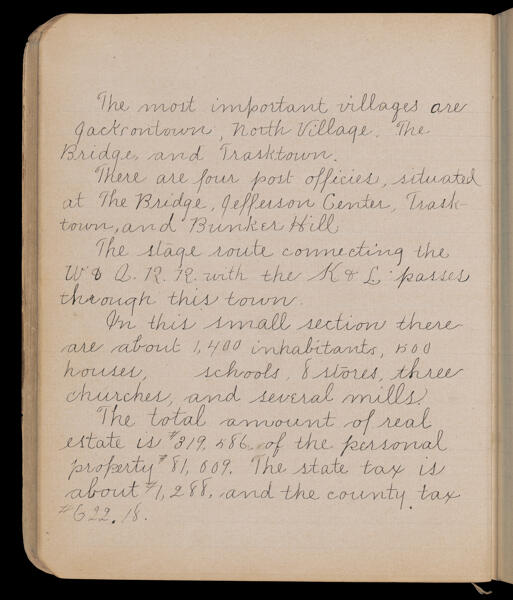 The most important villages are
Jacksontown, North Village, The
Bridge, and Trasktown.
There are four post officies, situated
at The Bridge, Jefferson Center, Trask-
town, and Bunker Hill
The stage route connecting the
W & Q. R. R. with the K & L passes
through this town.
In this small section there
are about 1,400 inhabitants, 500
houses, schools, 8 stores, three
churches, and several mills.
The total amount of real
estate is $319,586, of the personal
property $81,009. The state tax is
about $1,288, and the county tax
$622.18.